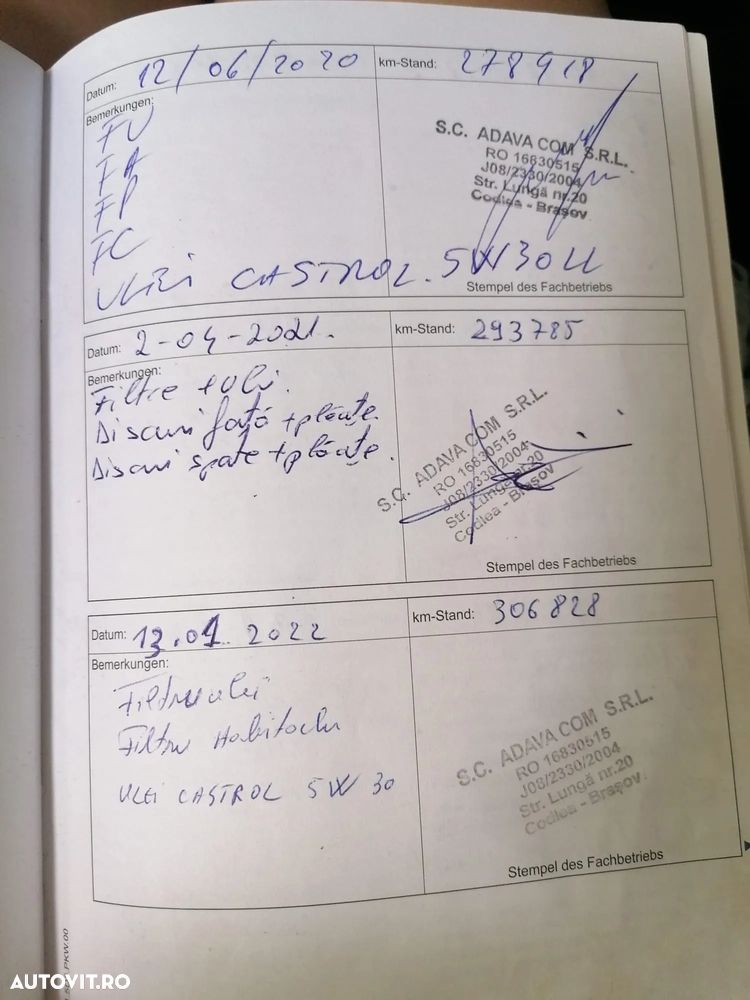 Datum: 12/06/2020 km-Stand: 278918
Bemerkungen:
FU
FA
FP
FC
ULEI CASTROL. 5W30LL
S.C. ADAVA COM S.R.L.
RO 16830515
J08/2330/2004
Str. Lungă nr.20
Codlea - Braşov
Stempel des Fachbetriebs
Datum: 2-04-2021. km-Stand: 293785
Bemerkungen:
Filtre + Ulei.
Discuri față + plăcuțe.
Discuri spate + plăcuțe.
S.C. ADAVA COM S.R.L.
RO 16830515
J08/2330/2004
Str. Lungă nr.20
Codlea - Braşov
Stempel des Fachbetriebs
Datum: 13.01.2022 km-Stand: 306828
Bemerkungen:
Filtru ulei
Filtru Habitaclu
ULEI CASTROL 5W 30
S.C. ADAVA COM S.R.L.
RO 16830515
J08/2330/2004
Str. Lungă nr.20
Codlea - Braşov
Stempel des Fachbetriebs
PKW.00
AUTOVIT.RO